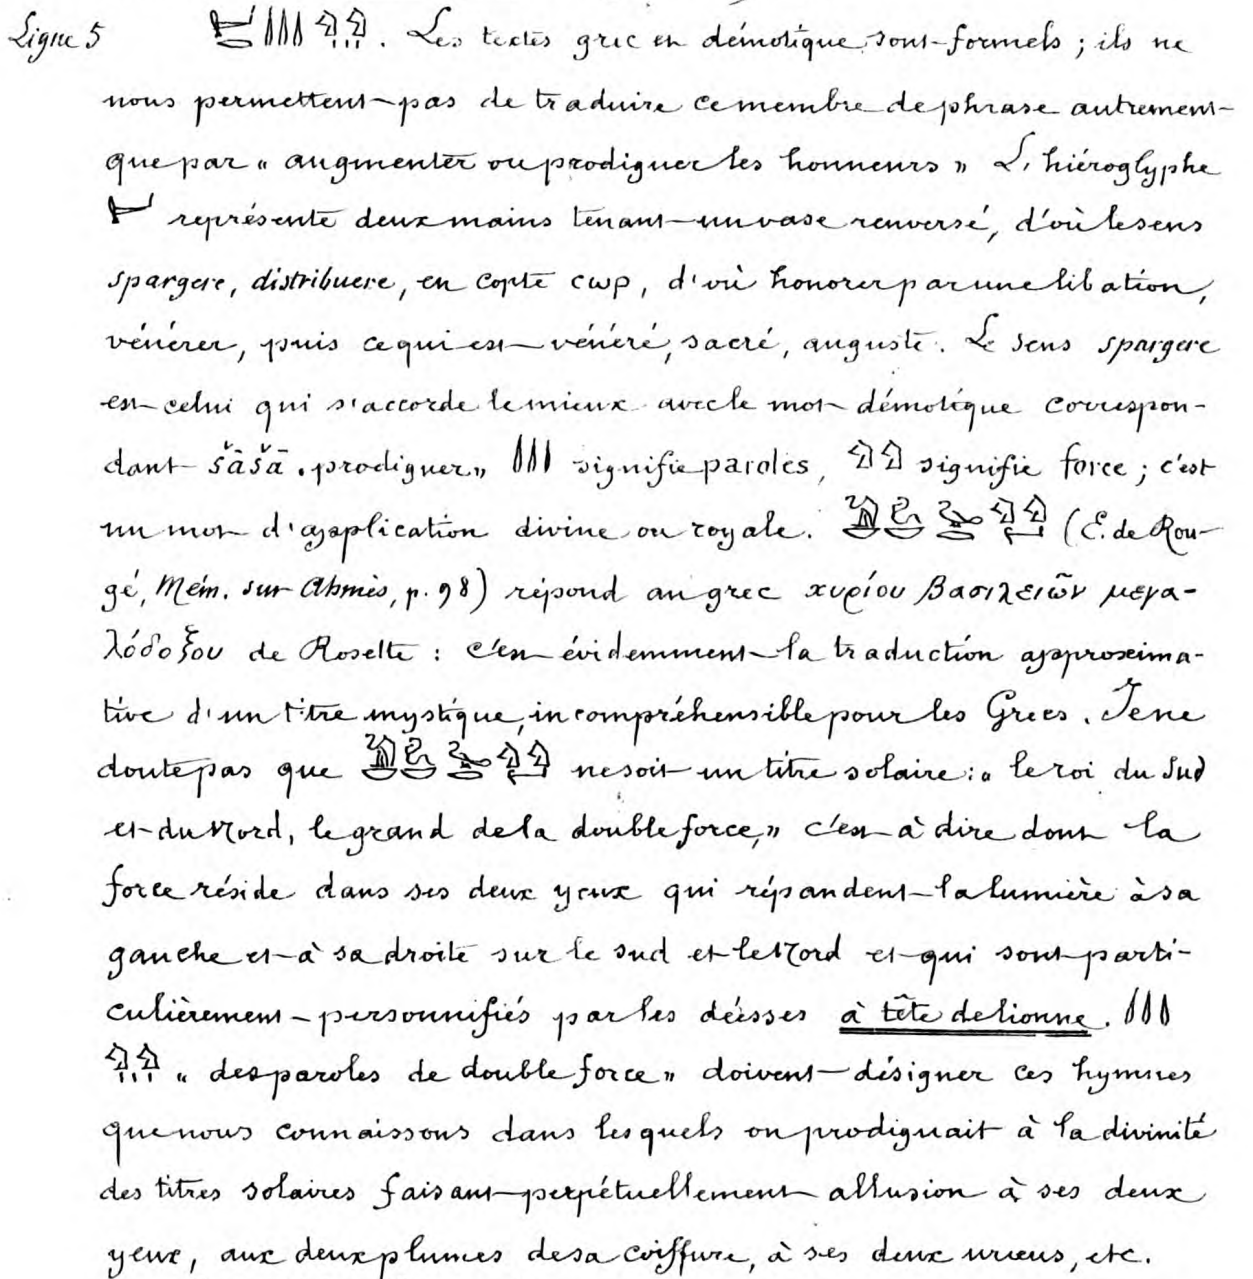 Ligne 5 . Les textes grec en démotique sont formels ; ils ne
nous permettent pas de traduire ce membre de phrase autrement
que par « augmenter ou prodiguer les honneurs » L'hiéroglyphe
représente deux mains tenant un vase renversé, d'où le sens
spargere, distribuere, en copte ⲥⲱⲣ, d'où honorer par une libation,
vénérer, puis ce qui est vénéré, sacré, auguste. Le sens spargere
est celui qui s'accorde le mieux avec le mot démotique correspon-
dant šāšā « prodiguer » signifie paroles, signifie force ; c'est
un mot d'application divine ou royale. (E. de Rou-
gé, Mém. sur Ahmès, p. 98) répond au grec κυρίου βασιλειῶν μεγα-
λόδοξου de Rosette : c'est évidemment la traduction approxima-
tive d'un titre mystique, incompréhensible pour les Grecs. Je ne
doute pas que ne soit un titre solaire : « le roi du Sud
et du Nord, le grand de la double force, » c'est à dire dont la
force réside dans ses deux yeux qui répandent la lumière à sa
gauche et à sa droite sur le sud et le Nord et qui sont parti-
culièrement personnifiés par les déesses à tête de lionne.
« des paroles de double force » doivent désigner ces hymnes
que nous connaissons dans lesquels on prodiguait à la divinité
des titres solaires faisant perpétuellement allusion à ses deux
yeux, aux deux plumes de sa coiffure, à ses deux uræus, etc.